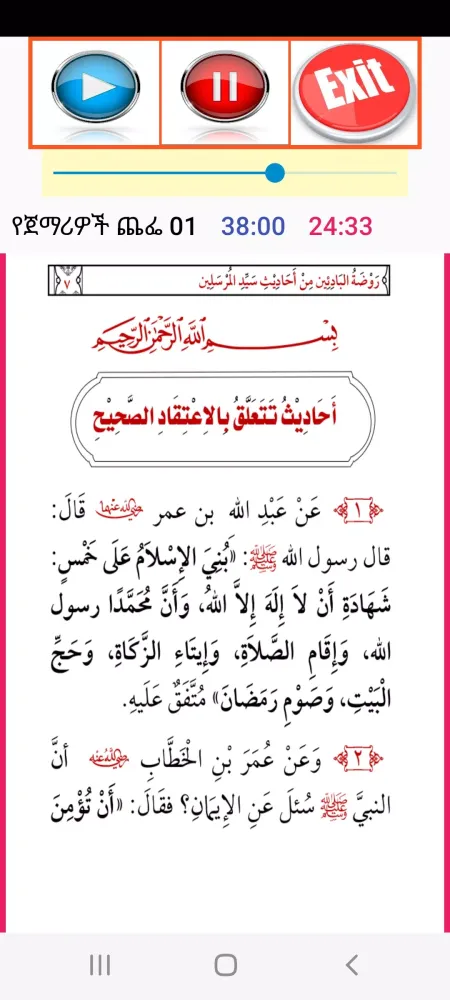 Exit
የጀማሪዎች ጨፌ 01 38:00 24:33
رَوْضَةُ البَادِئِين مِنْ أَحَادِيْثِ سَيِّدِ المُرْسَلِين ٧
بِسْمِ اللَّهِ الرَّحْمَٰنِ الرَّحِيمِ
أَحَادِيْثُ تَتَعَلَّقُ بِالاعْتِقَادِ الصَّحِيْحِ
١ عَنْ عَبْدِ الله بن عمر رضي الله عنهما قَالَ:
قال رسول الله ﷺ: «بُنِيَ الإِسْلَامُ عَلَى خَمْسٍ:
شَهَادَةِ أَنْ لاَ إِلَهَ إِلاَّ اللهُ، وَأَنَّ مُحَمَّدًا رسول
الله، وَإِقَامِ الصَّلاَةِ، وَإِيتَاءِ الزَّكَاةِ، وَحَجِّ
الْبَيْتِ، وَصَوْمِ رَمَضَانَ» مُتَّفَقٌ عَلَيهِ.
٢ وَعَنْ عُمَرَ بْنِ الْخَطَّابِ رضي الله عنه أنَّ
النبيَّ ﷺ سُئلَ عَنِ الإِيمَانِ؟ فقَالَ: «أَنْ تُؤْمِنَ